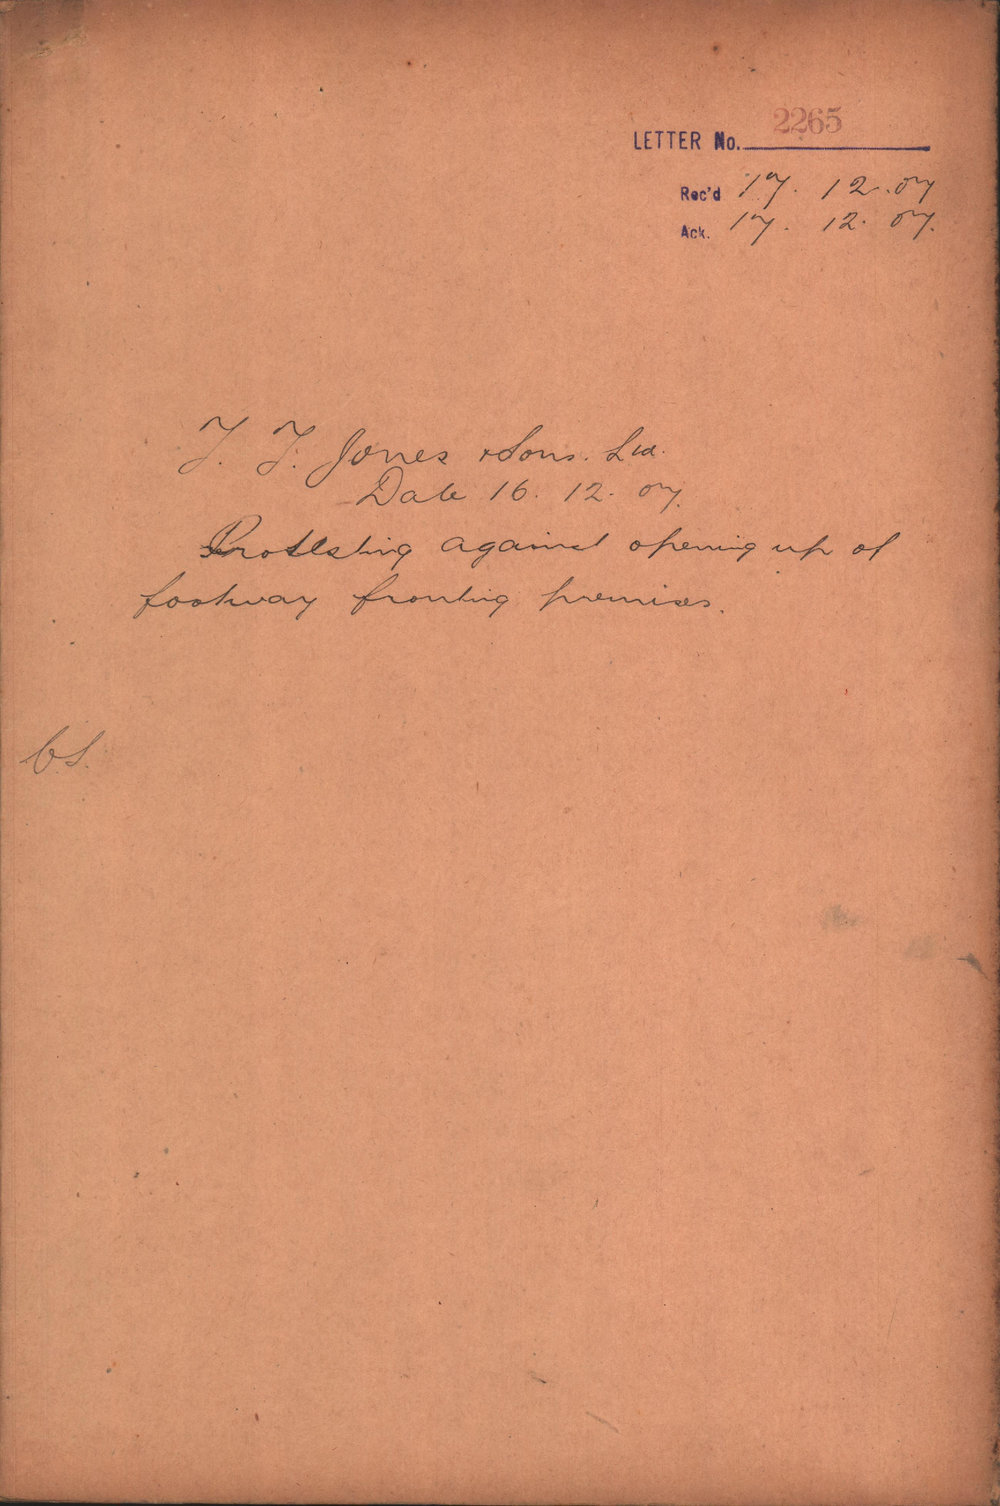 LETTER No. 2265
Rec'd 17. 12. 07
Ack. 17. 12. 07.
T. T. Jones & Sons. Ltd.
Date 16. 12. 07.
Protesting against opening up of
footway fronting premises.
C.S.